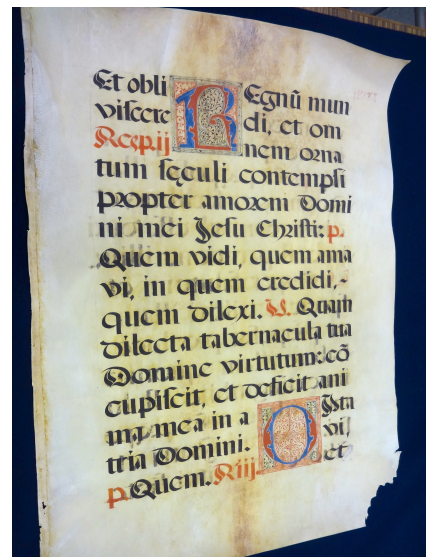 Et obli REgnū mun
viscere di, et om
Respij nem orna
tum sęculi contempsi
propter amorem Domi
ni mei Jesu Christi: p.
Quem vidi, quem ama
vi, in quem credidi,
quem dilexi. V. Quam
dilecta tabernacula tua
Domine virtutum: cō
cupiscit, et deficit ani
ma mea in a OIsta
tria Domini. vi,
p. Quem. Riij et